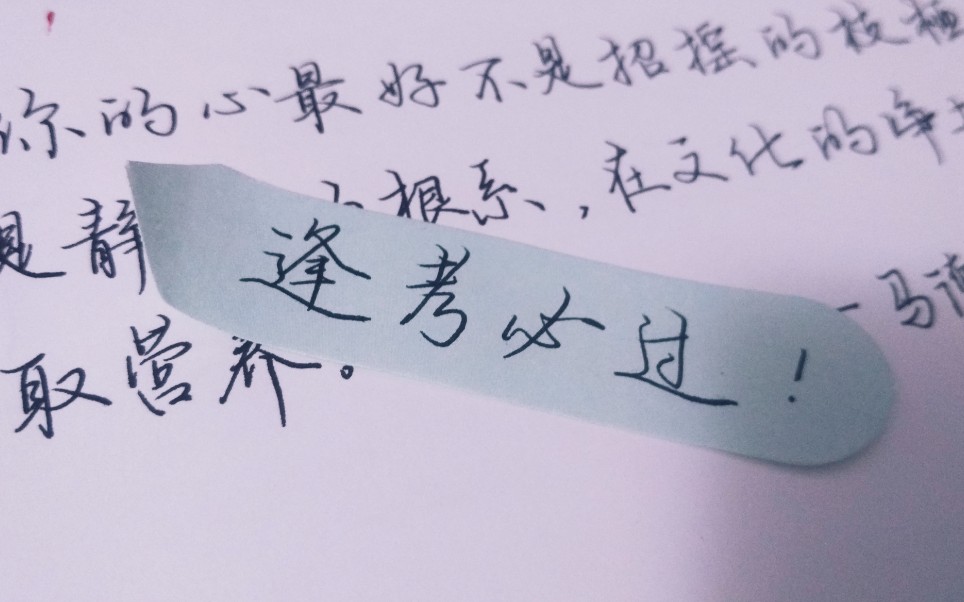 你的心最好不是招摇的枝桠
是静 根系,在文化的净土
取营养。
逢考必过!
一马德